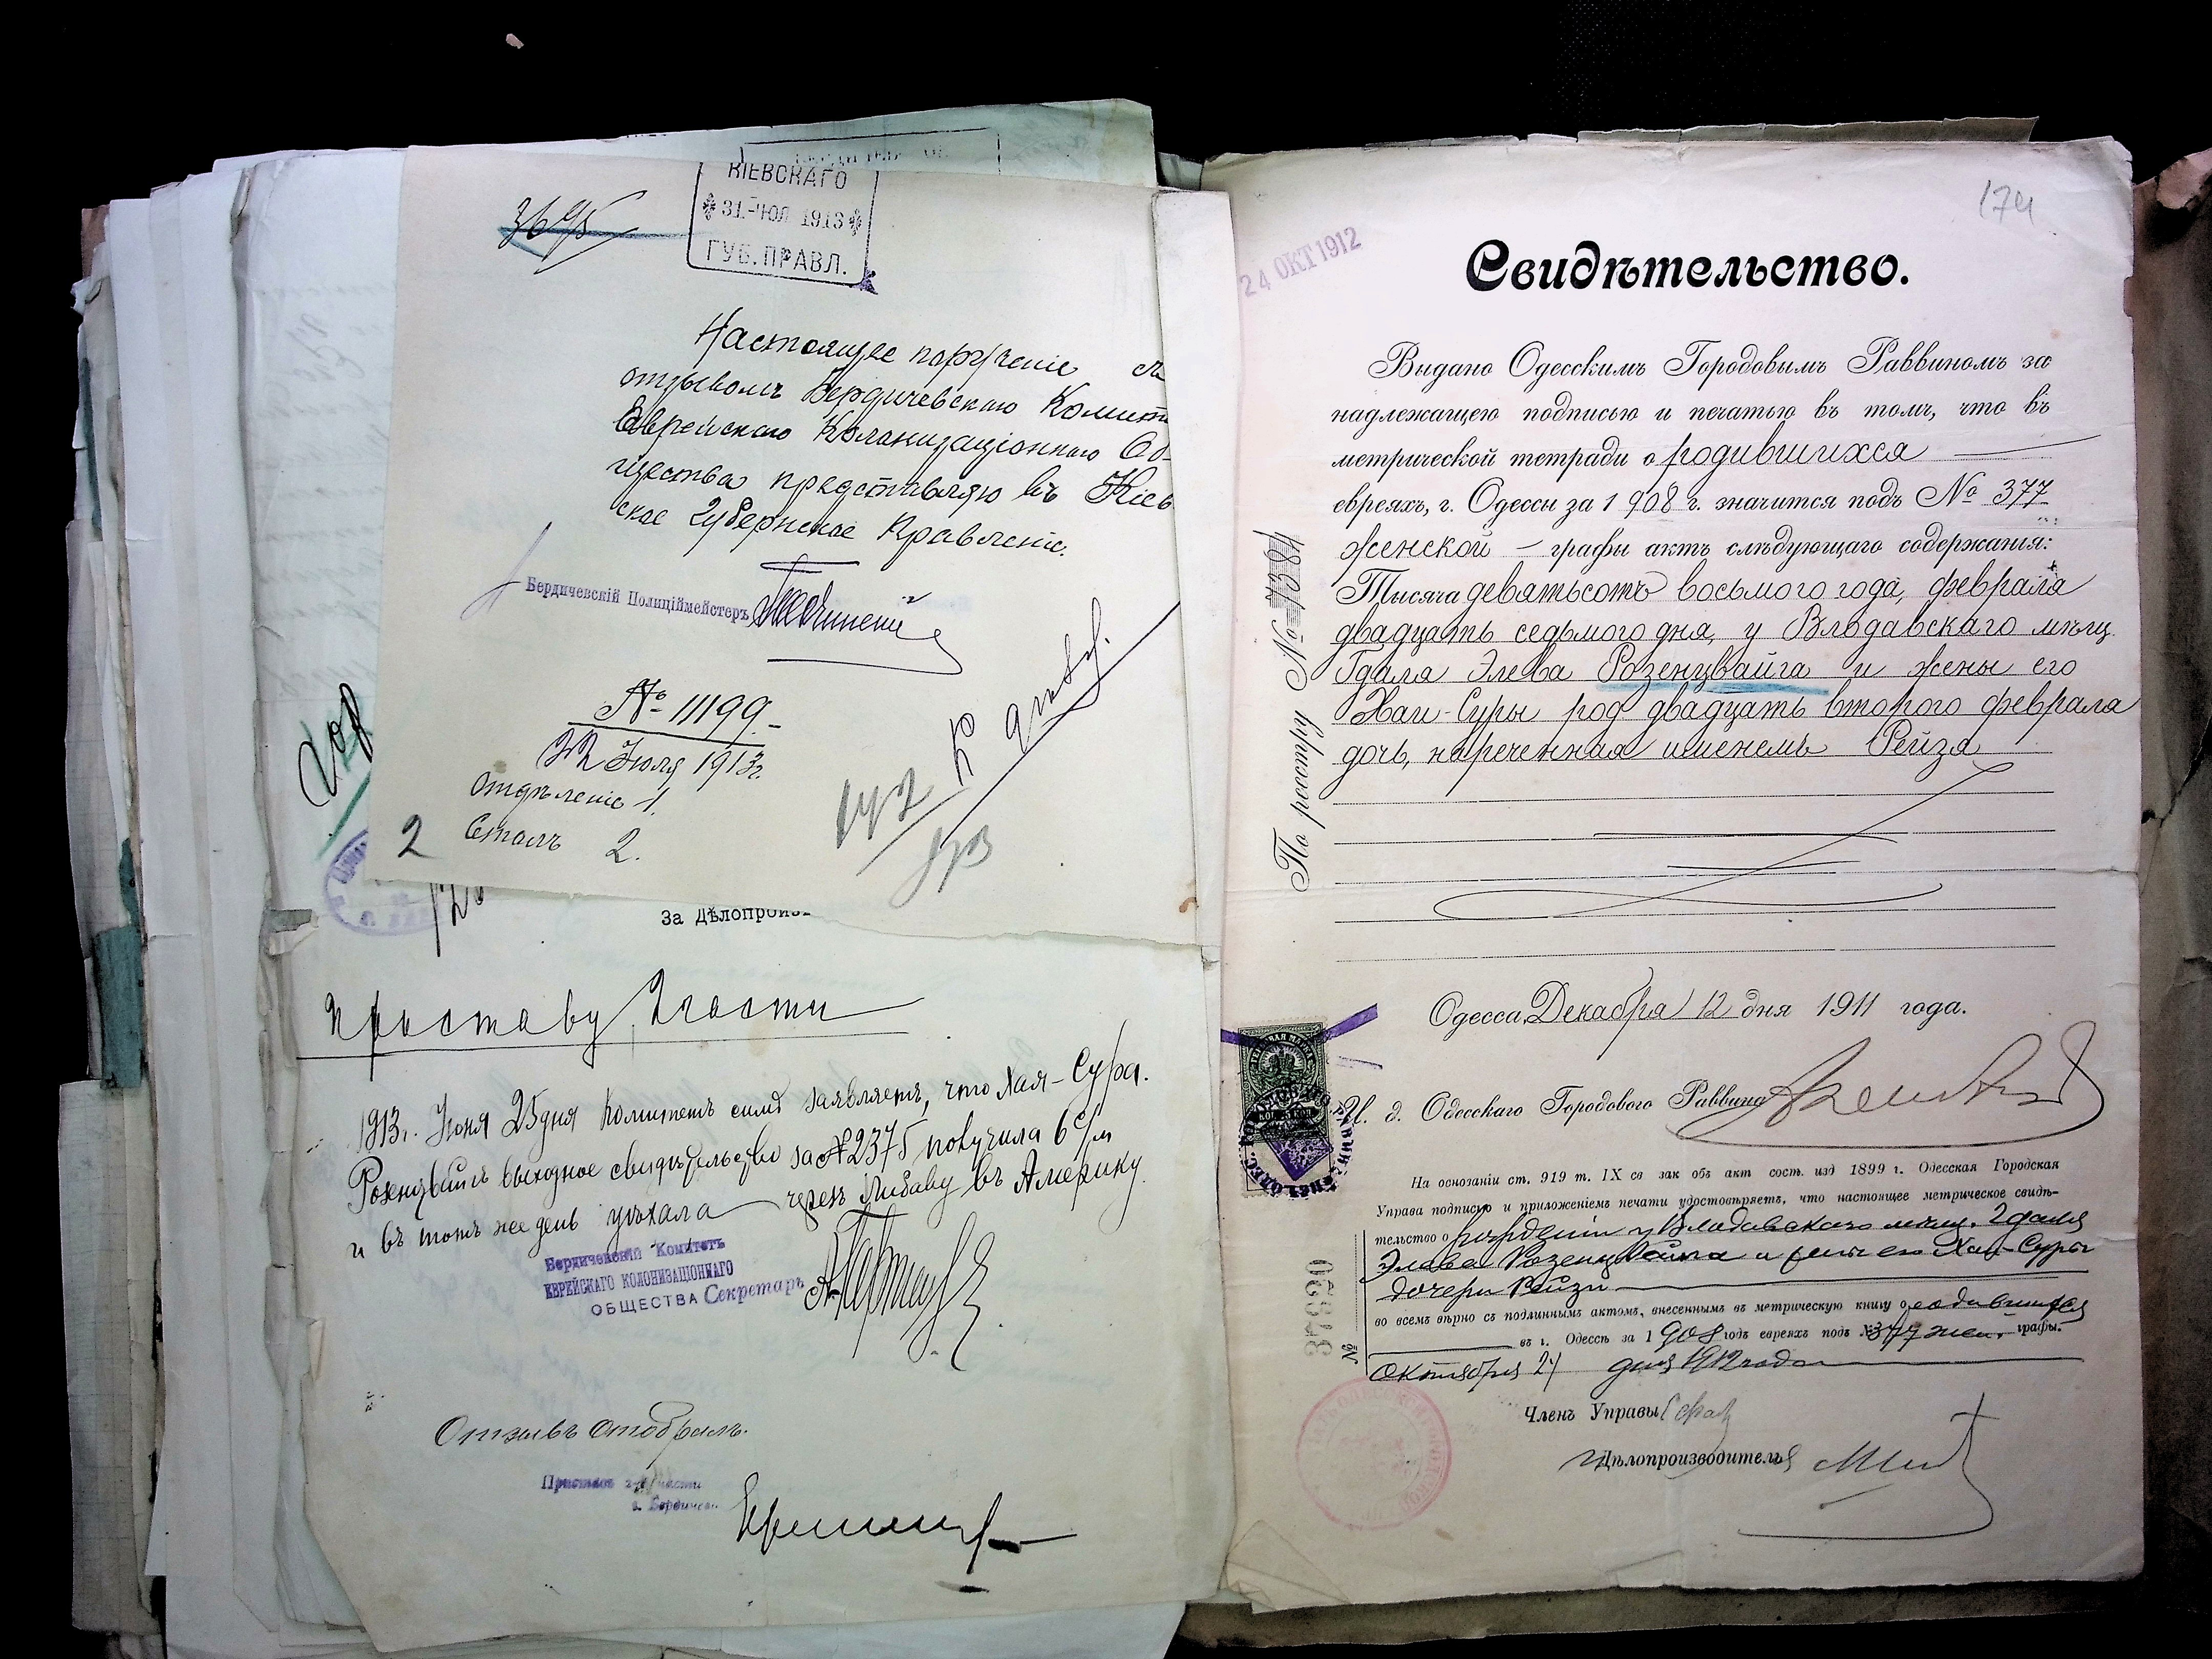 3695
КІЕВСКАГО
31 ІЮЛ 1913
ГУБ. ПРАВЛ.
Настоящее порученіе съ
отзывомъ Бердичевскаго Комит
Еврейскаго Колонизаціоннаго Об-
щества представляю въ Кіев
ское Губернское Правленіе.
Бердичевскій Полиціймейстеръ
№ 11199
22 Іюля 1913 г.
Отдѣленіе 1.
Столъ 2.
2
К
За Дѣлопроиз
Приставу 2 части
1913 г. Іюня 25 дня Комитетъ симъ заявляетъ, что Хая-Сура
Розенцвайгъ выходное свидѣтельство за № 2375 получила 6 с/м
и въ тотъ же день уѣхала черезъ Либаву въ Америку.
Бердичевскій Комитетъ
ЕВРЕЙСКАГО КОЛОНИЗАЦІОННАГО
ОБЩЕСТВА Секретарь
Отзывъ отобралъ.
Приставъ 2-й части
г. Бердичева
174
24 ОКТ 1912
Свидѣтельство.
Выдано Одесскимъ Городовымъ Раввиномъ за
надлежащею подписью и печатью въ томъ, что въ
метрической тетради о родившихся
евреяхъ, г. Одессы за 1908 г. значится подъ № 377
женской графы актъ слѣдующаго содержанія:
Тысяча девятьсотъ восьмого года, февраля
двадцать седьмого дня, у Влодавскаго мѣщ.
Гдаля Элева Розенцвайга и жены его
Хаи-Суры род двадцать второго февраля
дочь, нареченная именемъ Рейзя
По реестру №
Одесса, Декабря 12 дня 1911 года.
И. д. Одесскаго Городового Раввина
На основаніи ст. 919 т. IX св зак объ акт сост. изд 1899 г. Одесская Городская
Управа подписью и приложеніемъ печати удостовѣряетъ, что настоящее метрическое свидѣ-
тельство о рожденіи у Влодавскаго мѣщ. Гдаля
Элева Розенцвайга и жены его Хаи-Суры
дочери Рейзи
во всемъ вѣрно съ подлиннымъ актомъ, внесеннымъ въ метрическую книгу о родившихся
въ г. Одессѣ за 1908 годъ евреяхъ подъ № 377 жен. графы.
Октября 24 дня 1912 года
№ 37620
Членъ Управы
Дѣлопроизводитель